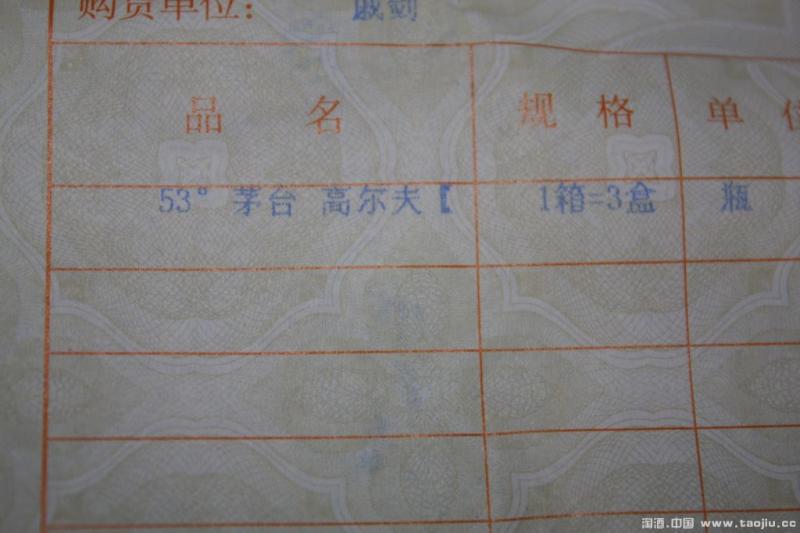 购货单位： 戚剑
品 名 规 格 单 位
53° 茅台 高尔夫【 1箱=3盒 瓶
淘酒.中国 www.taojiu.cc